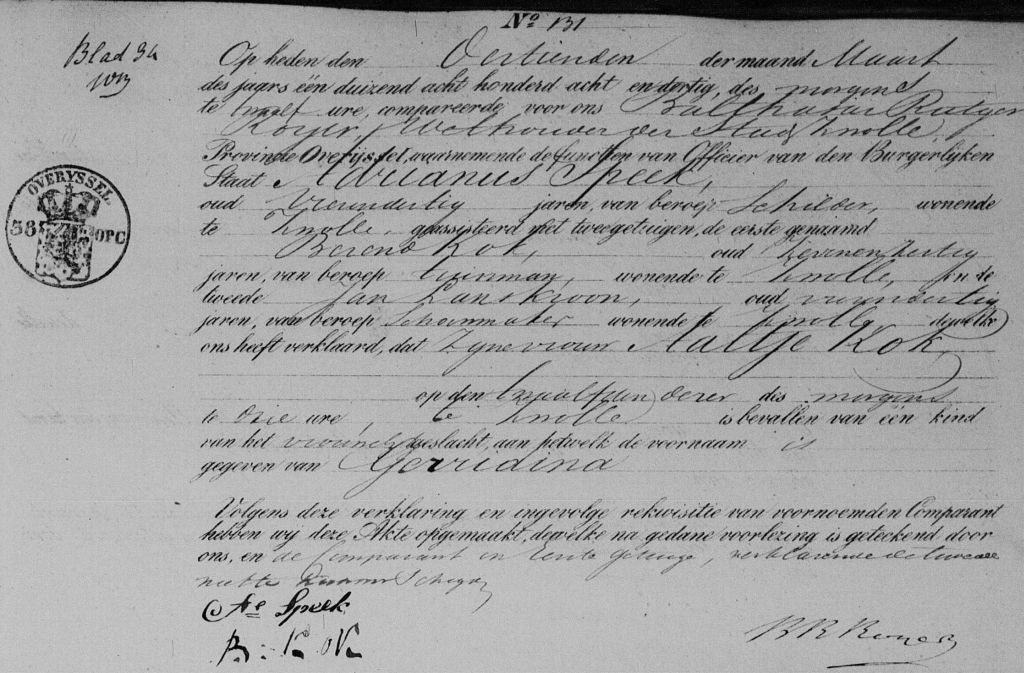 No 131
Blad 34
Op heden den Dertienden der maand Maart
des jaars één duizend acht honderd acht en dertig, des morgens
te twaalf ure, compareerde voor ons Balthazar Rutger
Royer, Wethouder der Stad Zwolle,
Provincie Overijssel, waarnemende de functien van Officier van den Burgerlijken
Staat Adrianus Speek,
oud Vierendertig jaren, van beroep Schilder, wonende
te Zwolle, geassisteerd met twee getuigen, de eerste genaamd
Berend Kok, oud Zevenenzestig
jaren, van beroep Tuinman, wonende te Zwolle, en de
tweede Jan Lanskroon, oud vierendertig
jaren, van beroep Schoenmaker wonende te Zwolle, dewelke
ons heeft verklaard, dat Zyne vrouw Aaltje Kok,
op den twaalfden dezer des morgens
te drie ure, te Zwolle is bevallen van één kind
van het vrouwelyk geslacht, aan hetwelk de voornaam is
gegeven van Gerridina
OVERYSSEL
38 OPC
Volgens deze verklaring en ingevolge rekwisitie van voornoemden Comparant
hebben wij deze Akte opgemaakt, dewelke na gedane voorlezing is geteekend door
ons, en de Comparant en eerste getuige, verklarende de tweede
niet te kunnen Schryven
As Speek
B: Kok
BR Royer